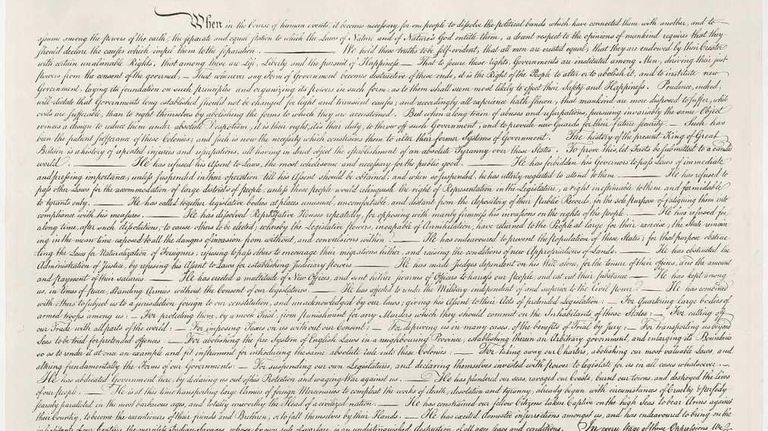 When in the Course of human events, it becomes necessary for one people to dissolve the political bands which have connected them with another, and to
assume among the powers of the earth, the separate and equal station to which the Laws of Nature and of Nature's God entitle them, a decent respect to the opinions of mankind requires that they
should declare the causes which impel them to the separation. — We hold these truths to be self-evident, that all men are created equal, that they are endowed by their Creator
with certain unalienable Rights, that among these are Life, Liberty and the pursuit of Happiness.— That to secure these rights, Governments are instituted among Men, deriving their just
powers from the consent of the governed,— That whenever any Form of Government becomes destructive of these ends, it is the Right of the People to alter or to abolish it, and to institute new
Government, laying its foundation on such principles and organizing its powers in such form, as to them shall seem most likely to effect their Safety and Happiness. Prudence, indeed,
will dictate that Governments long established should not be changed for light and transient causes; and accordingly all experience hath shewn, that mankind are more disposed to suffer, while
evils are sufferable, than to right themselves by abolishing the forms to which they are accustomed. But when a long train of abuses and usurpations, pursuing invariably the same Object
evinces a design to reduce them under absolute Despotism, it is their right, it is their duty, to throw off such Government, and to provide new Guards for their future security.— Such has
been the patient sufferance of these Colonies; and such is now the necessity which constrains them to alter their former Systems of Government. The history of the present King of Great
Britain is a history of repeated injuries and usurpations, all having in direct object the establishment of an absolute Tyranny over these States. To prove this, let Facts be submitted to a candid
world. — He has refused his Assent to Laws, the most wholesome and necessary for the public good. — He has forbidden his Governors to pass Laws of immediate
and pressing importance, unless suspended in their operation till his Assent should be obtained; and when so suspended, he has utterly neglected to attend to them. — He has refused to
pass other Laws for the accommodation of large districts of people, unless those people would relinquish the right of Representation in the Legislature, a right inestimable to them and formidable
to tyrants only. — He has called together legislative bodies at places unusual, uncomfortable, and distant from the depository of their Public Records, for the sole purpose of fatiguing them into
compliance with his measures. — He has dissolved Representative Houses repeatedly, for opposing with manly firmness his invasions on the rights of the people. — He has refused for
a long time, after such dissolutions, to cause others to be elected; whereby the Legislative powers, incapable of Annihilation, have returned to the People at large for their exercise; the State remain-
ing in the mean time exposed to all the dangers of invasion from without, and convulsions within. — He has endeavoured to prevent the population of these States; for that purpose obstruc-
ting the Laws for Naturalization of Foreigners; refusing to pass others to encourage their migrations hither, and raising the conditions of new Appropriations of Lands. — He has obstructed the
Administration of Justice, by refusing his Assent to Laws for establishing Judiciary powers. — He has made Judges dependent on his Will alone, for the tenure of their offices, and the amount
and payment of their salaries. — He has erected a multitude of New Offices, and sent hither swarms of Officers to harrass our People, and eat out their substance. — He has kept among
us, in times of peace, Standing Armies without the Consent of our legislatures. — He has affected to render the Military independent of and superior to the Civil power. — He has combined
with others to subject us to a jurisdiction foreign to our constitution, and unacknowledged by our laws; giving his Assent to their Acts of pretended Legislation: — For Quartering large bodies of
armed troops among us: — For protecting them, by a mock Trial, from punishment for any Murders which they should commit on the Inhabitants of these States: — For cutting off
our Trade with all parts of the world: — For imposing Taxes on us without our Consent: — For depriving us in many cases, of the benefits of Trial by Jury: — For transporting us beyond
Seas to be tried for pretended offences — For abolishing the free System of English Laws in a neighbouring Province, establishing therein an Arbitrary government, and enlarging its Boundaries
so as to render it at once an example and fit instrument for introducing the same absolute rule into these Colonies: — For taking away our Charters, abolishing our most valuable Laws, and
altering fundamentally the Forms of our Governments: — For suspending our own Legislatures, and declaring themselves invested with power to legislate for us in all cases whatsoever. —
He has abdicated Government here, by declaring us out of his Protection and waging War against us. — He has plundered our seas, ravaged our Coasts, burnt our towns, and destroyed the lives
of our people. — He is at this time transporting large Armies of foreign Mercenaries to compleat the works of death, desolation and tyranny, already begun with circumstances of Cruelty & perfidy
scarcely paralleled in the most barbarous ages, and totally unworthy the Head of a civilized nation. — He has constrained our fellow Citizens taken Captive on the high Seas to bear Arms against
their Country, to become the executioners of their friends and Brethren, or to fall themselves by their Hands. — He has excited domestic insurrections amongst us, and has endeavoured to bring on the
inhabitants of our frontiers, the merciless Indian Savages, whose known rule of warfare, is an undistinguished destruction of all ages, sexes and conditions. In every stage of these Oppressions We